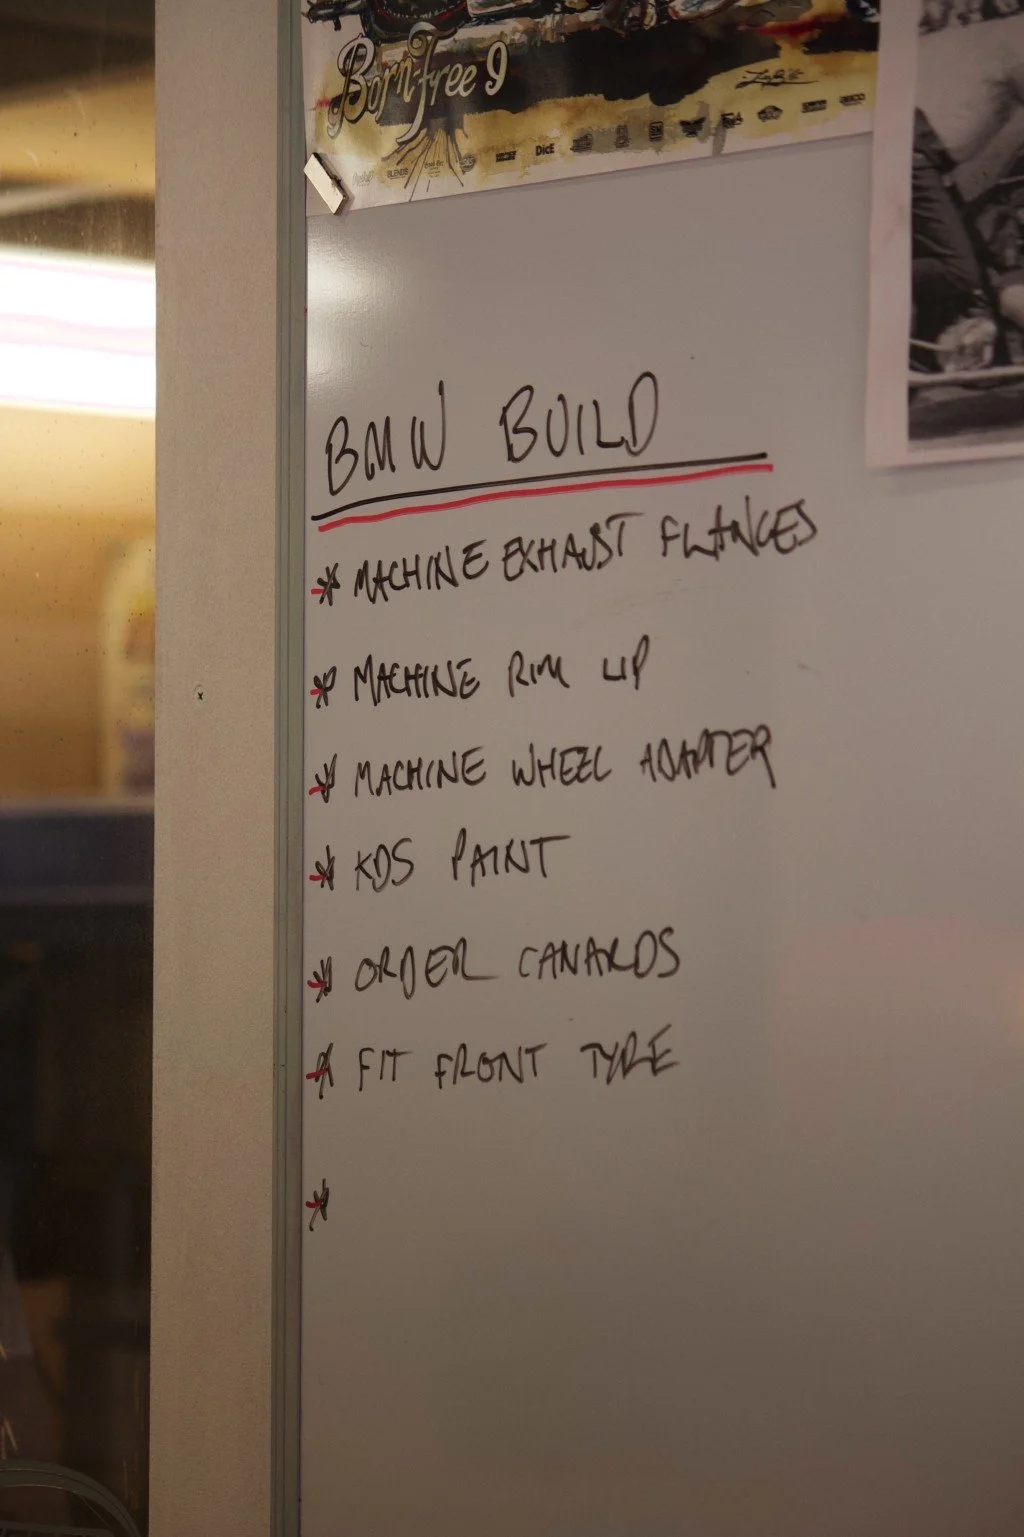 Born-Free 9
DicE
BLENDS
BMW BUILD
* MACHINE EXHAUST FLANGES
* MACHINE RIM LIP
* MACHINE WHEEL ADAPTER
* KDS PAINT
* ORDER CANARDS
* FIT FRONT TYRE
*